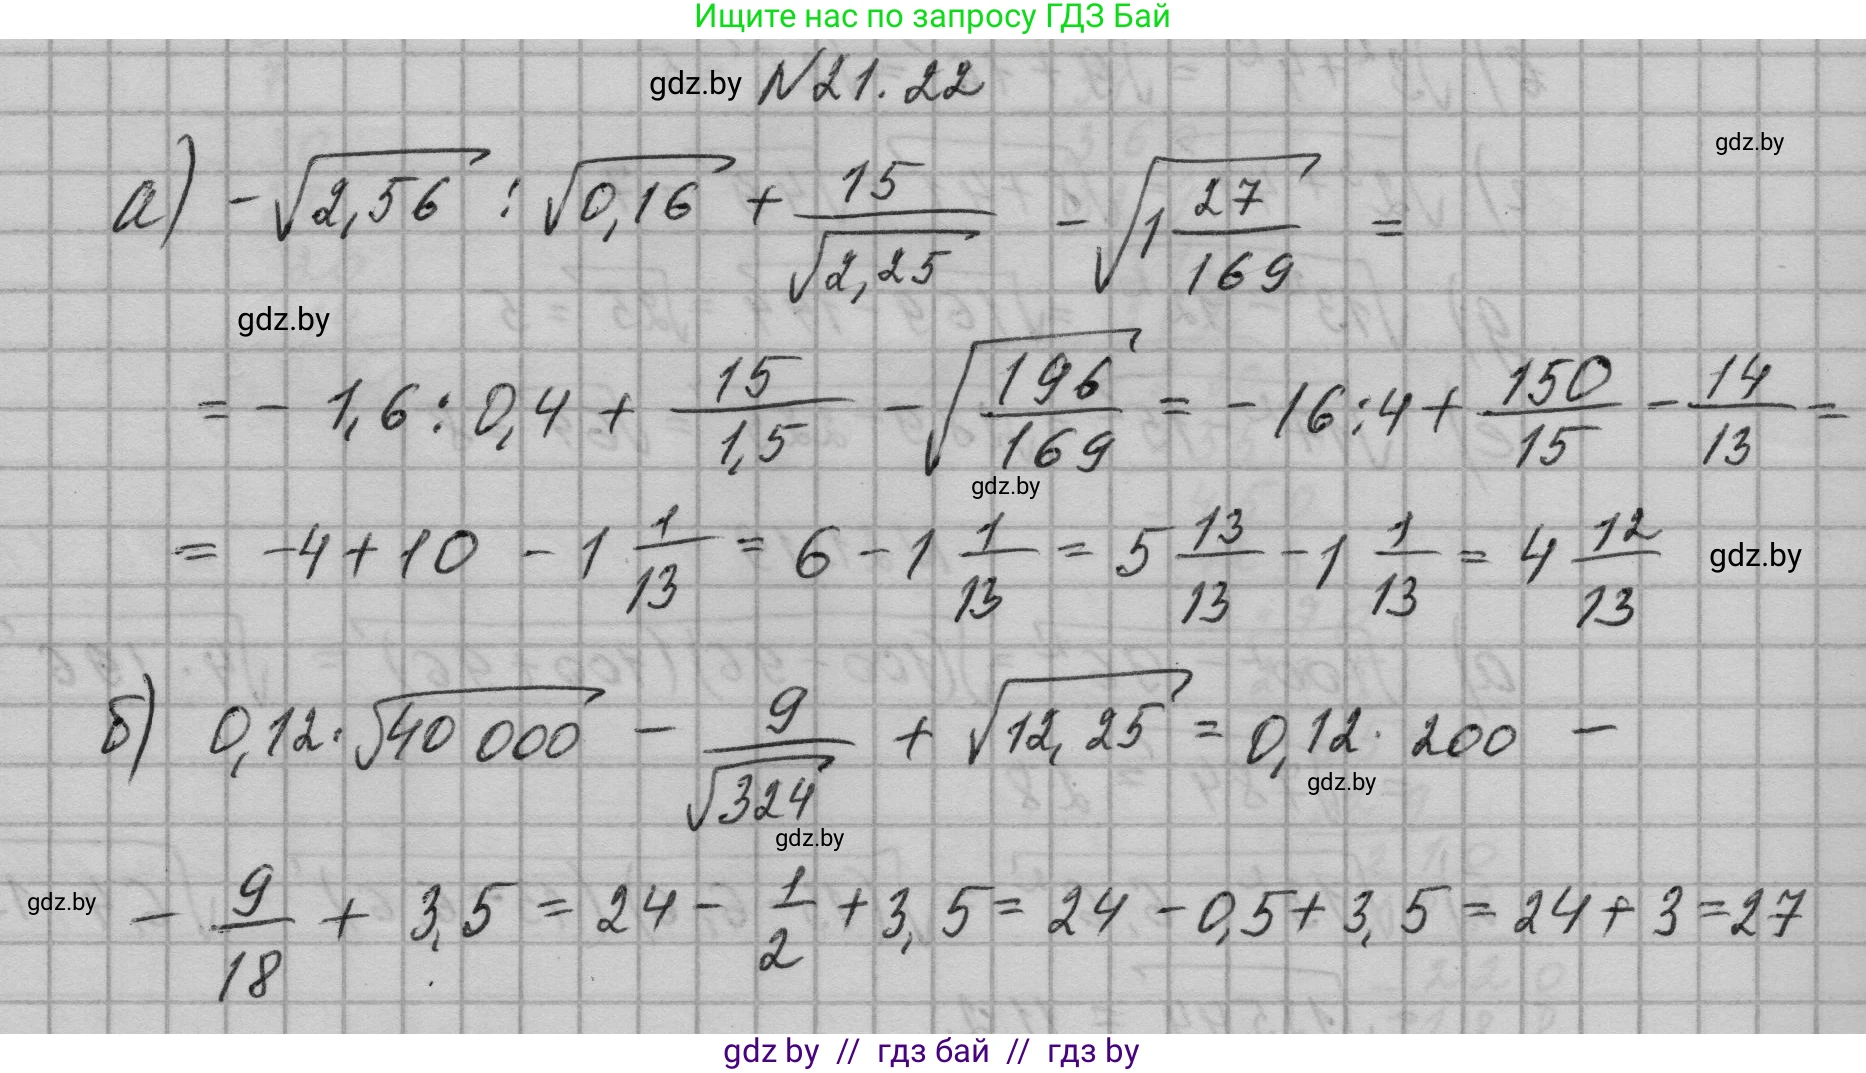 Ищите нас по запросу ГДЗ Бай
gdz.by №21.22
gdz.by
а) -√2,56 : √0,16 + 15/√2,25 - √(1 27/169) =
gdz.by
= - 1,6 : 0,4 + 15/1,5 - √(196/169) = -16:4 + 150/15 - 14/13 =
gdz.by
= -4+10 - 1 1/13 = 6 - 1 1/13 = 5 13/13 - 1 1/13 = 4 12/13 gdz.by
б) 0,12·√40 000 - 9/√324 + √12,25 = 0,12·200 -
gdz.by
gdz.by
gdz.by - 9/18 + 3,5 = 24 - 1/2 + 3,5 = 24 - 0,5 + 3,5 = 24 + 3 = 27
gdz by // гдз бай // гдз by